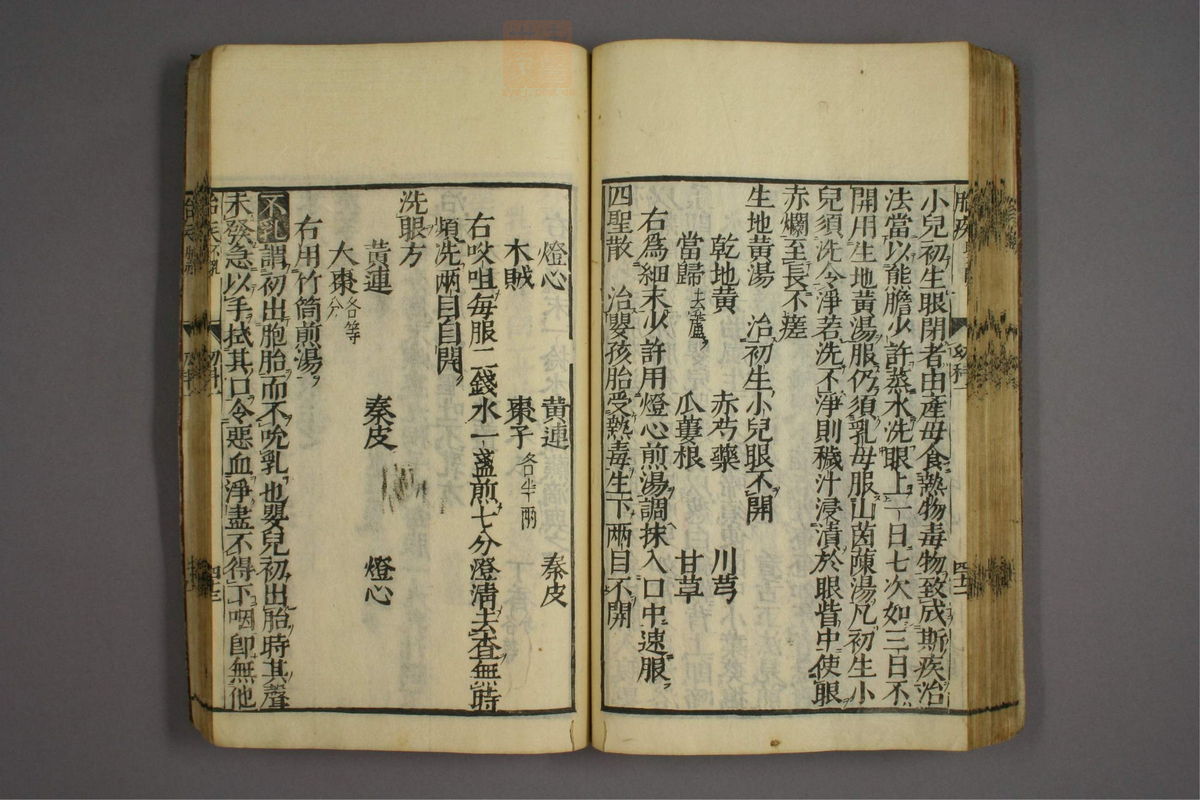 小兒初生眼閉者由產母食熱物毒物致成斯疾治
法當以熊膽少許蒸水洗眼上一日七次如三日不
開用生地黃湯服仍須乳母服山茵蔯湯凡初生小
兒須洗令淨若洗不淨則穢汁浸漬於眼眥中使眼
赤爛至長不瘥
生地黃湯 治初生小兒眼不開
乾地黃 赤芍藥 川芎
當歸去蘆 瓜蔞根 甘草
右為細末少許用燈心煎湯調抹入口中速服
四聖散 治嬰孩胎受熱毒生下兩目不開
燈心 黃連 秦皮
木賊 棗子各半兩
右㕮咀每服二錢水一盞煎七分澄清去查無時
頻洗兩目自開
洗眼方
黃連 秦皮 燈心
大棗各等分
右用竹筒煎湯
不乳謂初出胞胎而不吮乳也嬰兒初出胎時其聲
未發急以手拭其口令惡血淨盡不得下咽即無他
幼科一
四十二
四十三